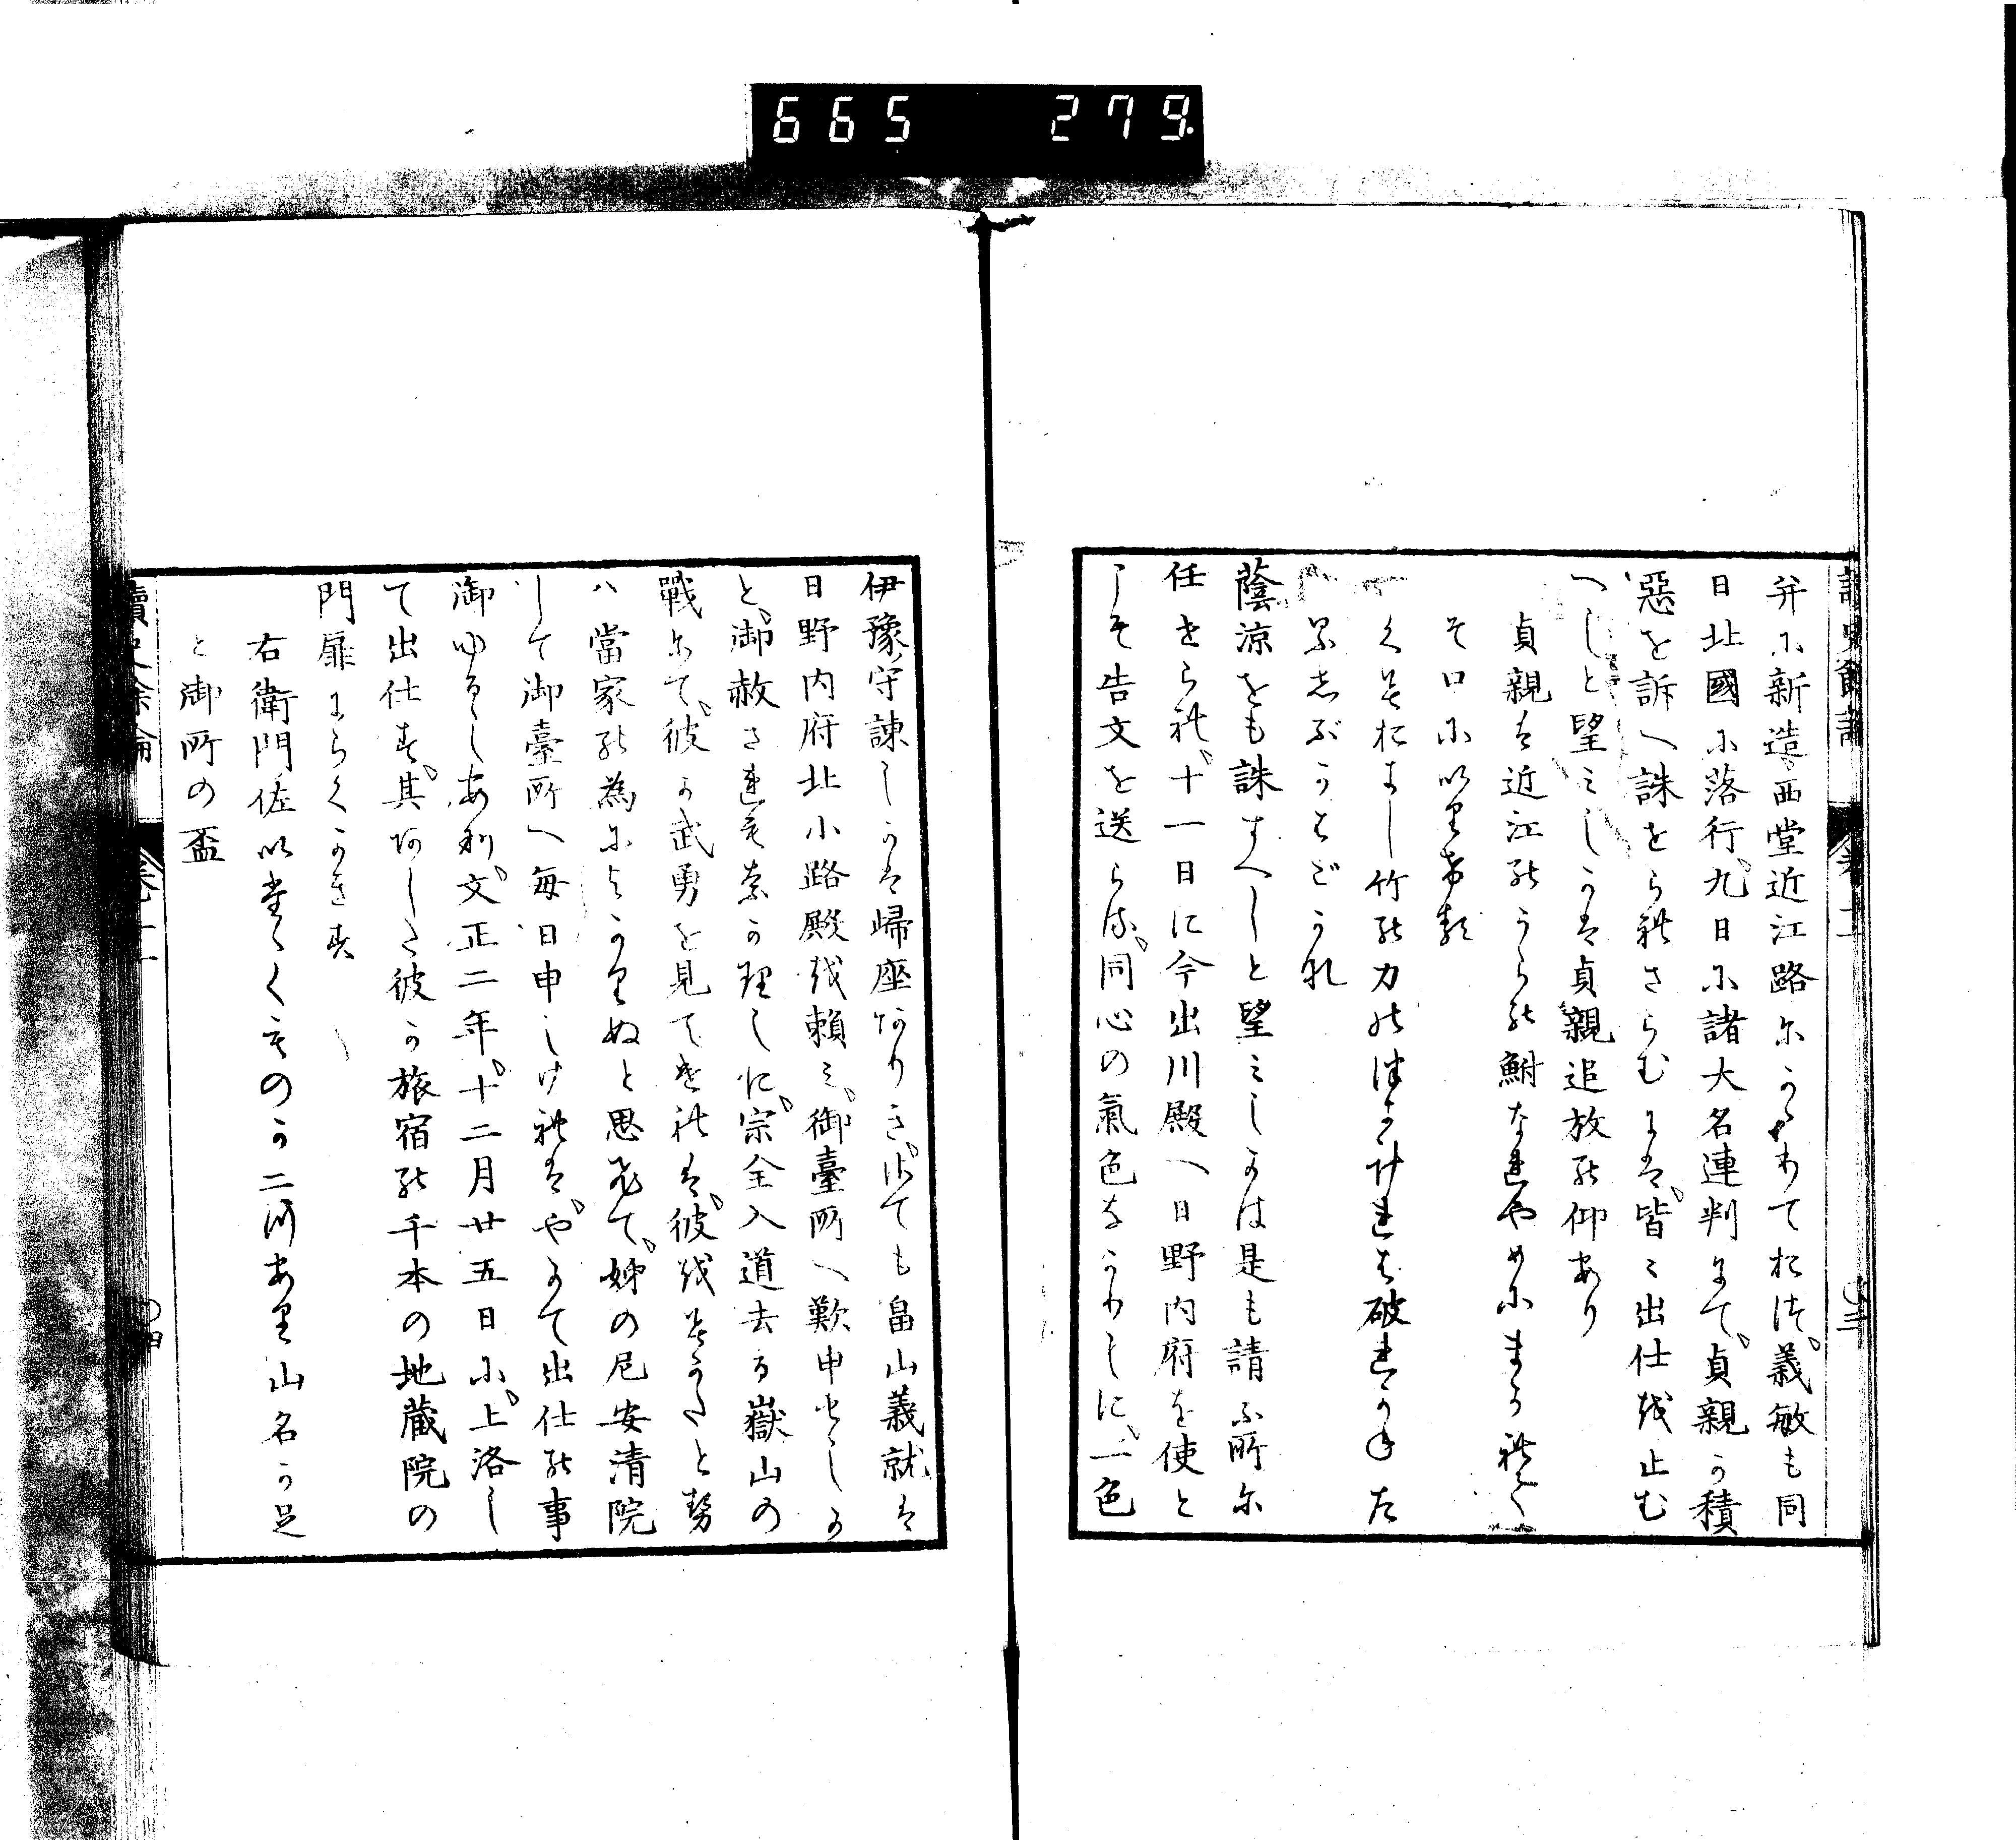 665 279
弁に新造西堂近江路にかゝりておつ、義敏も同
日北國に落行、九日に諸大名連判にて、貞親か積
惡を訴へ誅せられさらむには、皆〻出仕を止む
へしと望みしかは貞親追放の仰あり
貞親は近江のうらの鮒なれやめにまかれて
その口にいり
くそおまし竹の力の
蔭涼をも誅すへしと望みしかは是も請ふ所に
任せられ、十一日に今出川殿へ日野内府を使と
して告文を送らる、同心の氣色なかりしに、一色
伊豫守諫しかは歸座ありき、さても畠山義就は
日野内府北小路殿を頼み、御臺所へ歎申せしか
と、御赦されもなかりしに、宗全入道去る嶽山の
戰にて、彼か武勇を見てけれは、彼をそかたと勢
ハ當家の為によかりぬと思ひて、姉の尼安清院
して御臺所へ毎日申しけれは、やかて出仕の事
御ゆるしあり、文正二年、十二月廿五日に、上洛し
て出仕す、其あした彼か旅宿の千本の地蔵院の
門扉にらくかきす
右衛門佐いたゝくものか二つあり山名か足
と御所の盃
讀史餘論